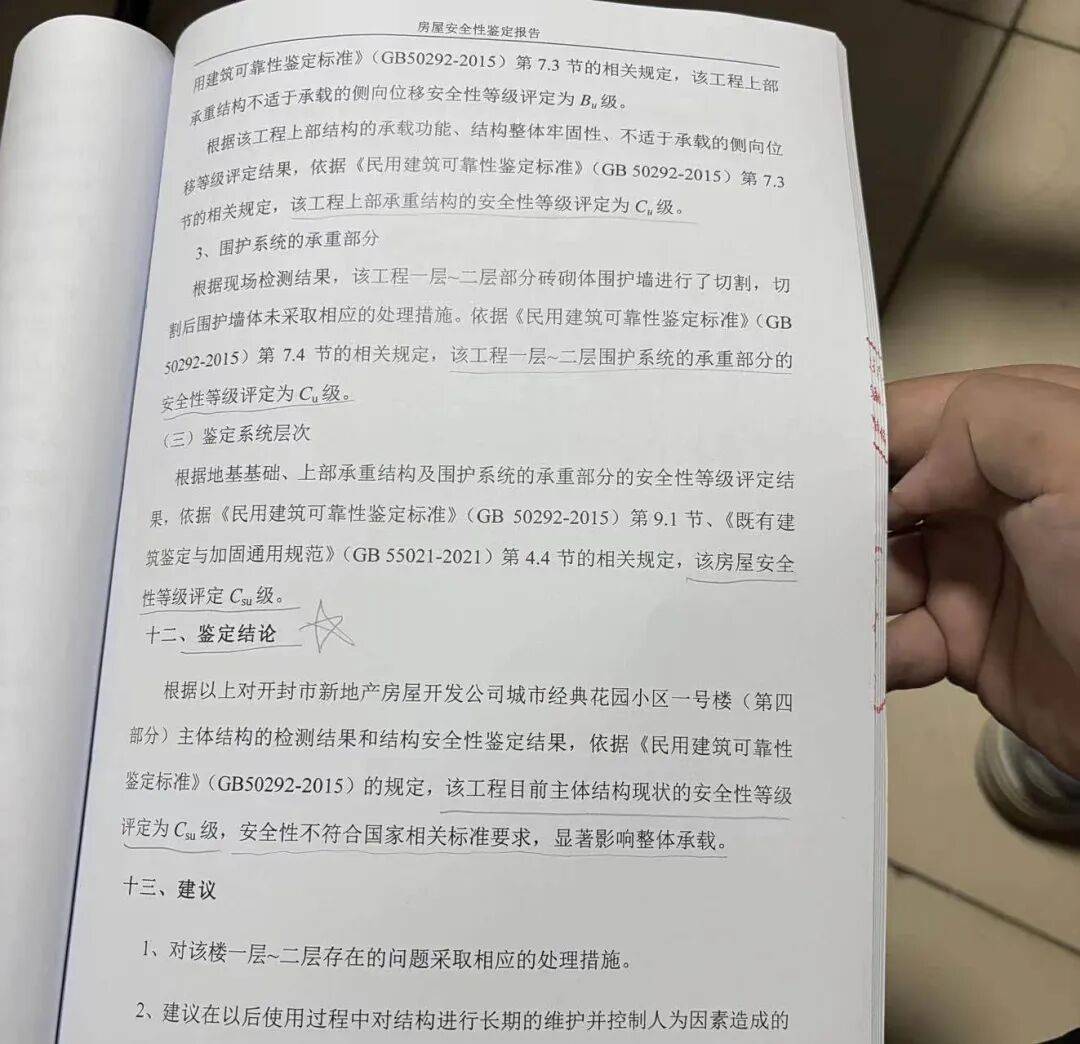 房屋安全性鉴定报告
用建筑可靠性鉴定标准》（GB50292-2015）第 7.3 节的相关规定，该工程上部
承重结构不适于承载的侧向位移安全性等级评定为 Bu 级。
根据该工程上部结构的承载功能、结构整体牢固性、不适于承载的侧向位
移等级评定结果，依据《民用建筑可靠性鉴定标准》（GB 50292-2015）第 7.3
节的相关规定，该工程上部承重结构的安全性等级评定为 Cu 级。
3、围护系统的承重部分
根据现场检测结果，该工程一层~二层部分砖砌体围护墙进行了切割，切
割后围护墙体未采取相应的处理措施。依据《民用建筑可靠性鉴定标准》（GB
50292-2015）第 7.4 节的相关规定，该工程一层~二层围护系统的承重部分的
安全性等级评定为 Cu 级。
（三）鉴定系统层次
根据地基基础、上部承重结构及围护系统的承重部分的安全性等级评定结
果，依据《民用建筑可靠性鉴定标准》（GB 50292-2015）第 9.1 节、《既有建
筑鉴定与加固通用规范》（GB 55021-2021）第 4.4 节的相关规定，该房屋安全
性等级评定 Csu 级。
十二、鉴定结论
根据以上对开封市新地产房屋开发公司城市经典花园小区一号楼（第四
部分）主体结构的检测结果和结构安全性鉴定结果，依据《民用建筑可靠性
鉴定标准》（GB50292-2015）的规定，该工程目前主体结构现状的安全性等级
评定为 Csu 级，安全性不符合国家相关标准要求，显著影响整体承载。
十三、建议
1、对该楼一层~二层存在的问题采取相应的处理措施。
2、建议在以后使用过程中对结构进行长期的维护并控制人为因素造成的